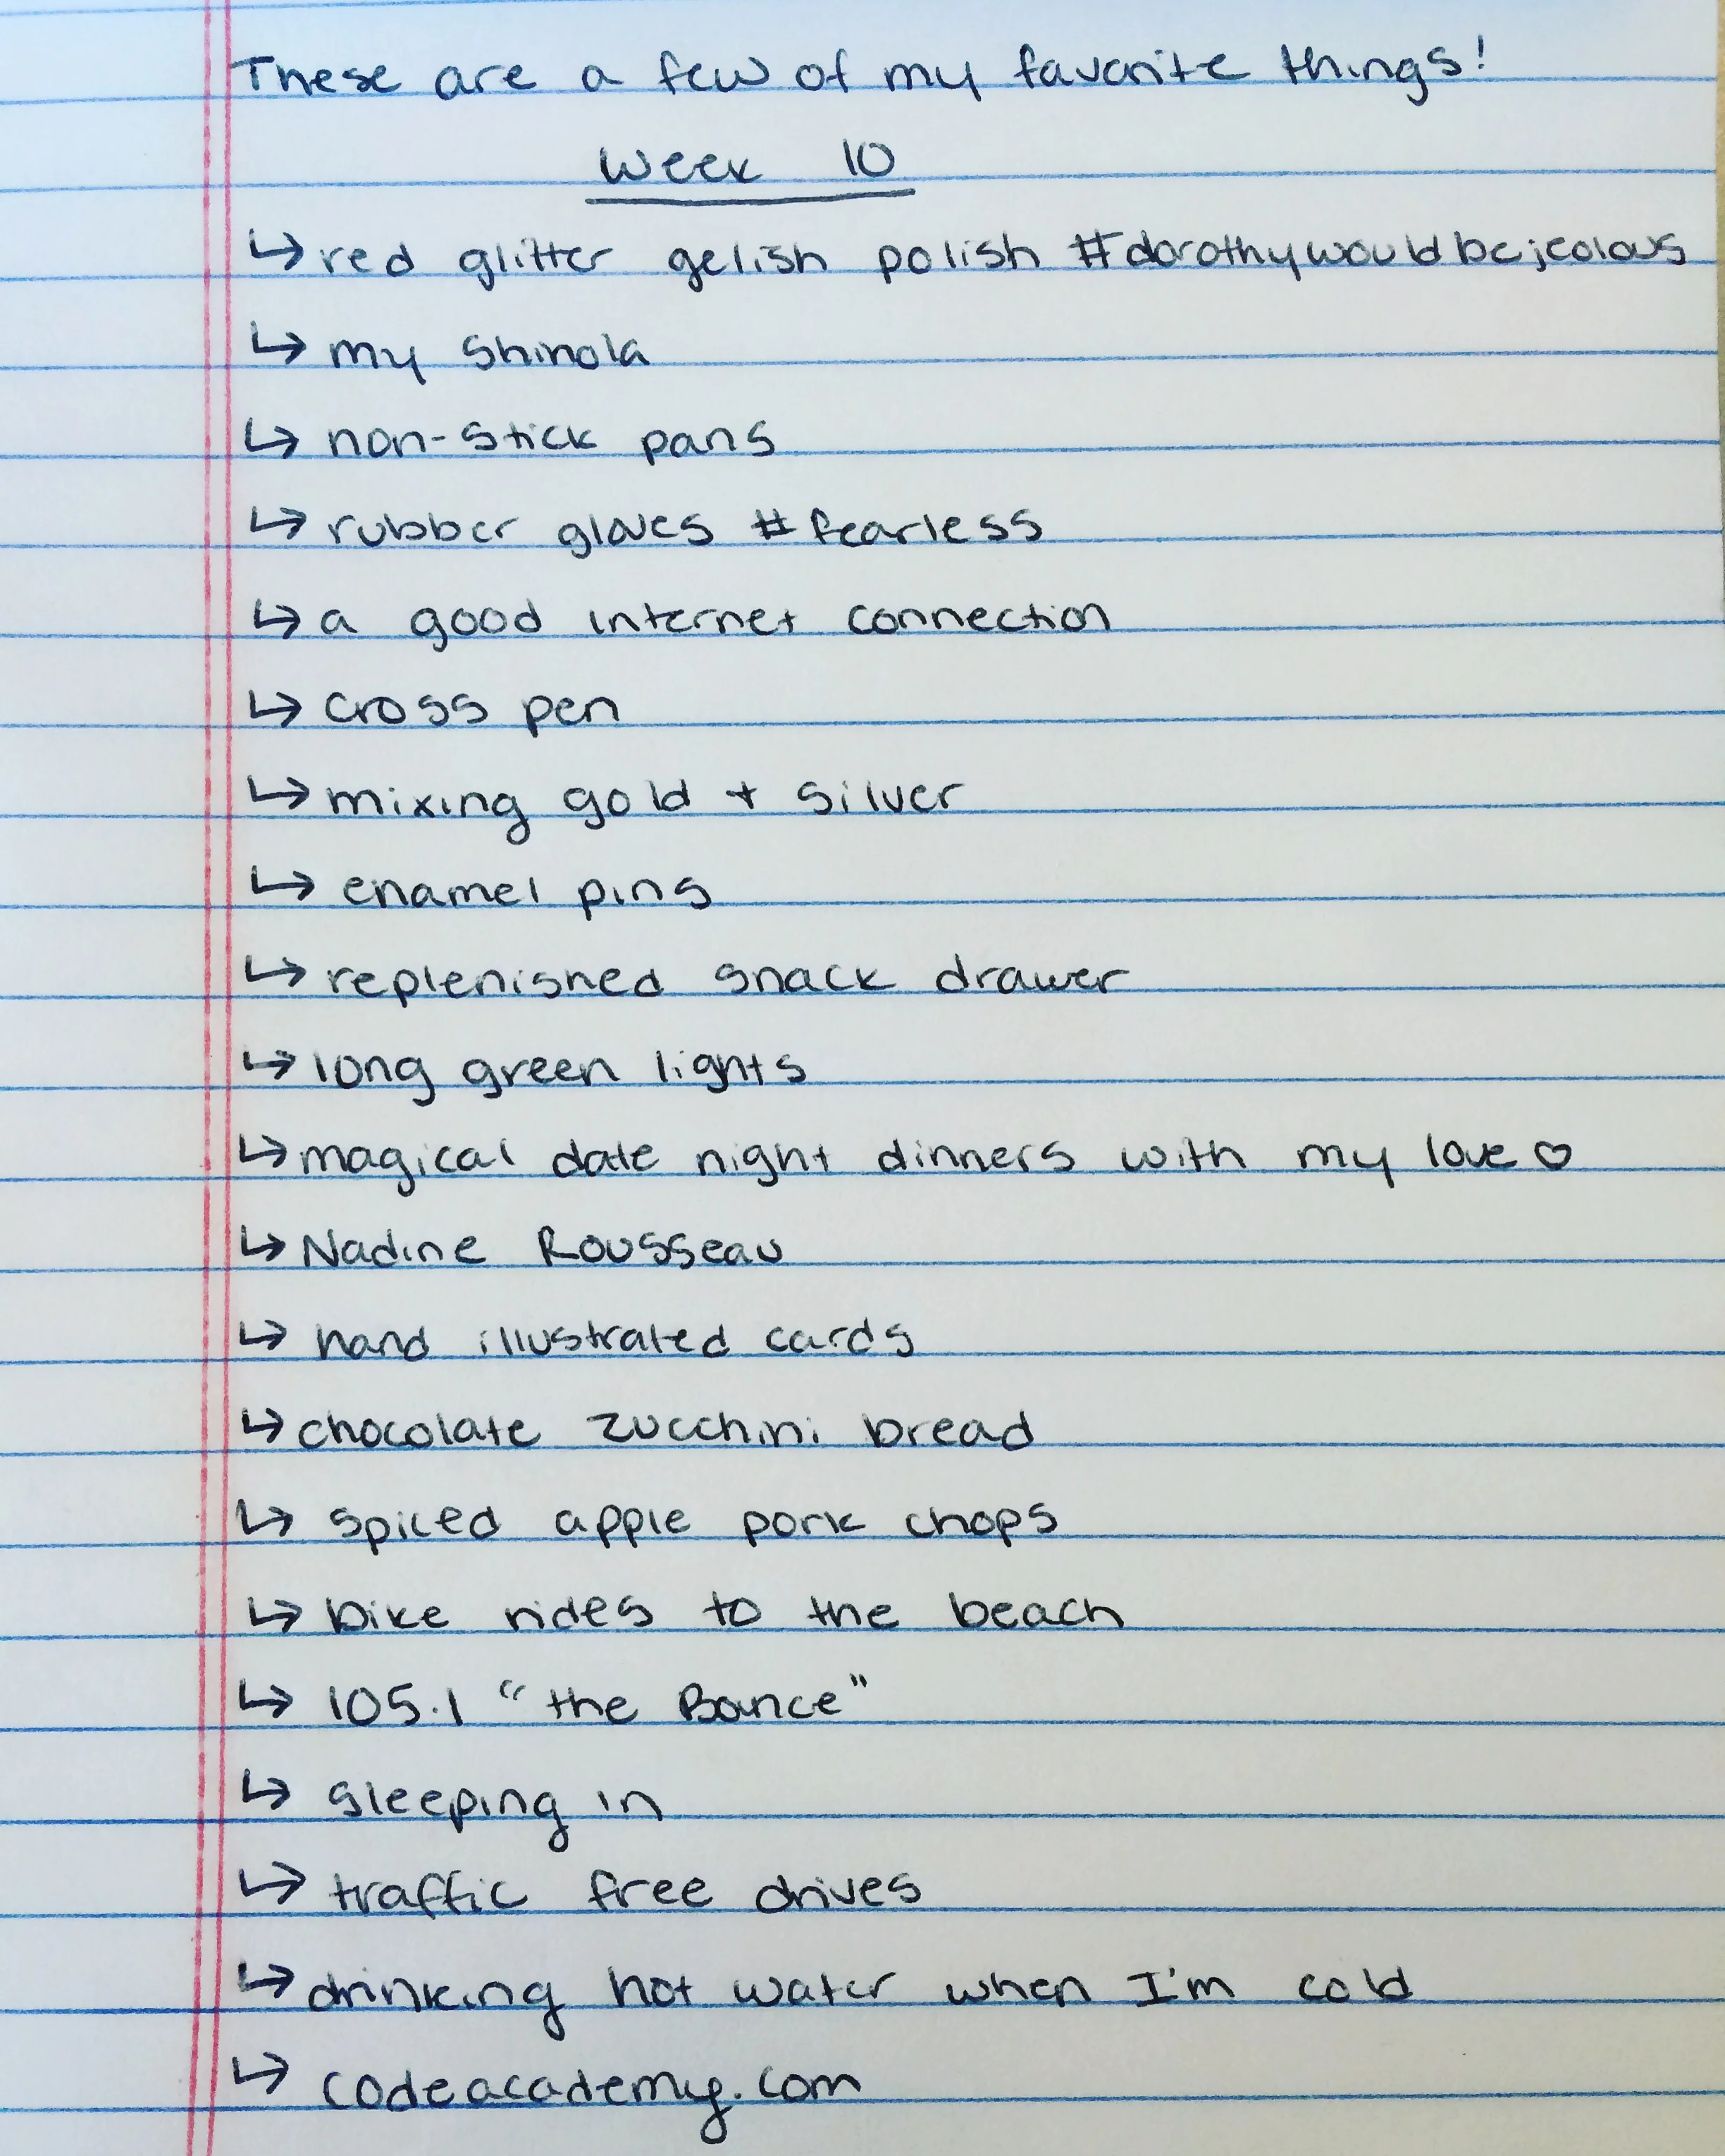 These are a few of my favorite things!
Week 10
↳ red glitter gelish polish #dorothywouldbejealous
↳ my Shinola
↳ non-stick pans
↳ rubber gloves #fearless
↳ a good internet connection
↳ cross pen
↳ mixing gold + silver
↳ enamel pins
↳ replenished snack drawer
↳ long green lights
↳ magical date night dinners with my love ♡
↳ Nadine Rousseau
↳ hand illustrated cards
↳ chocolate zucchini bread
↳ spiced apple pork chops
↳ bike rides to the beach
↳ 105.1 "the Bounce"
↳ sleeping in
↳ traffic free drives
↳ drinking hot water when I'm cold
↳ codeacademy.com